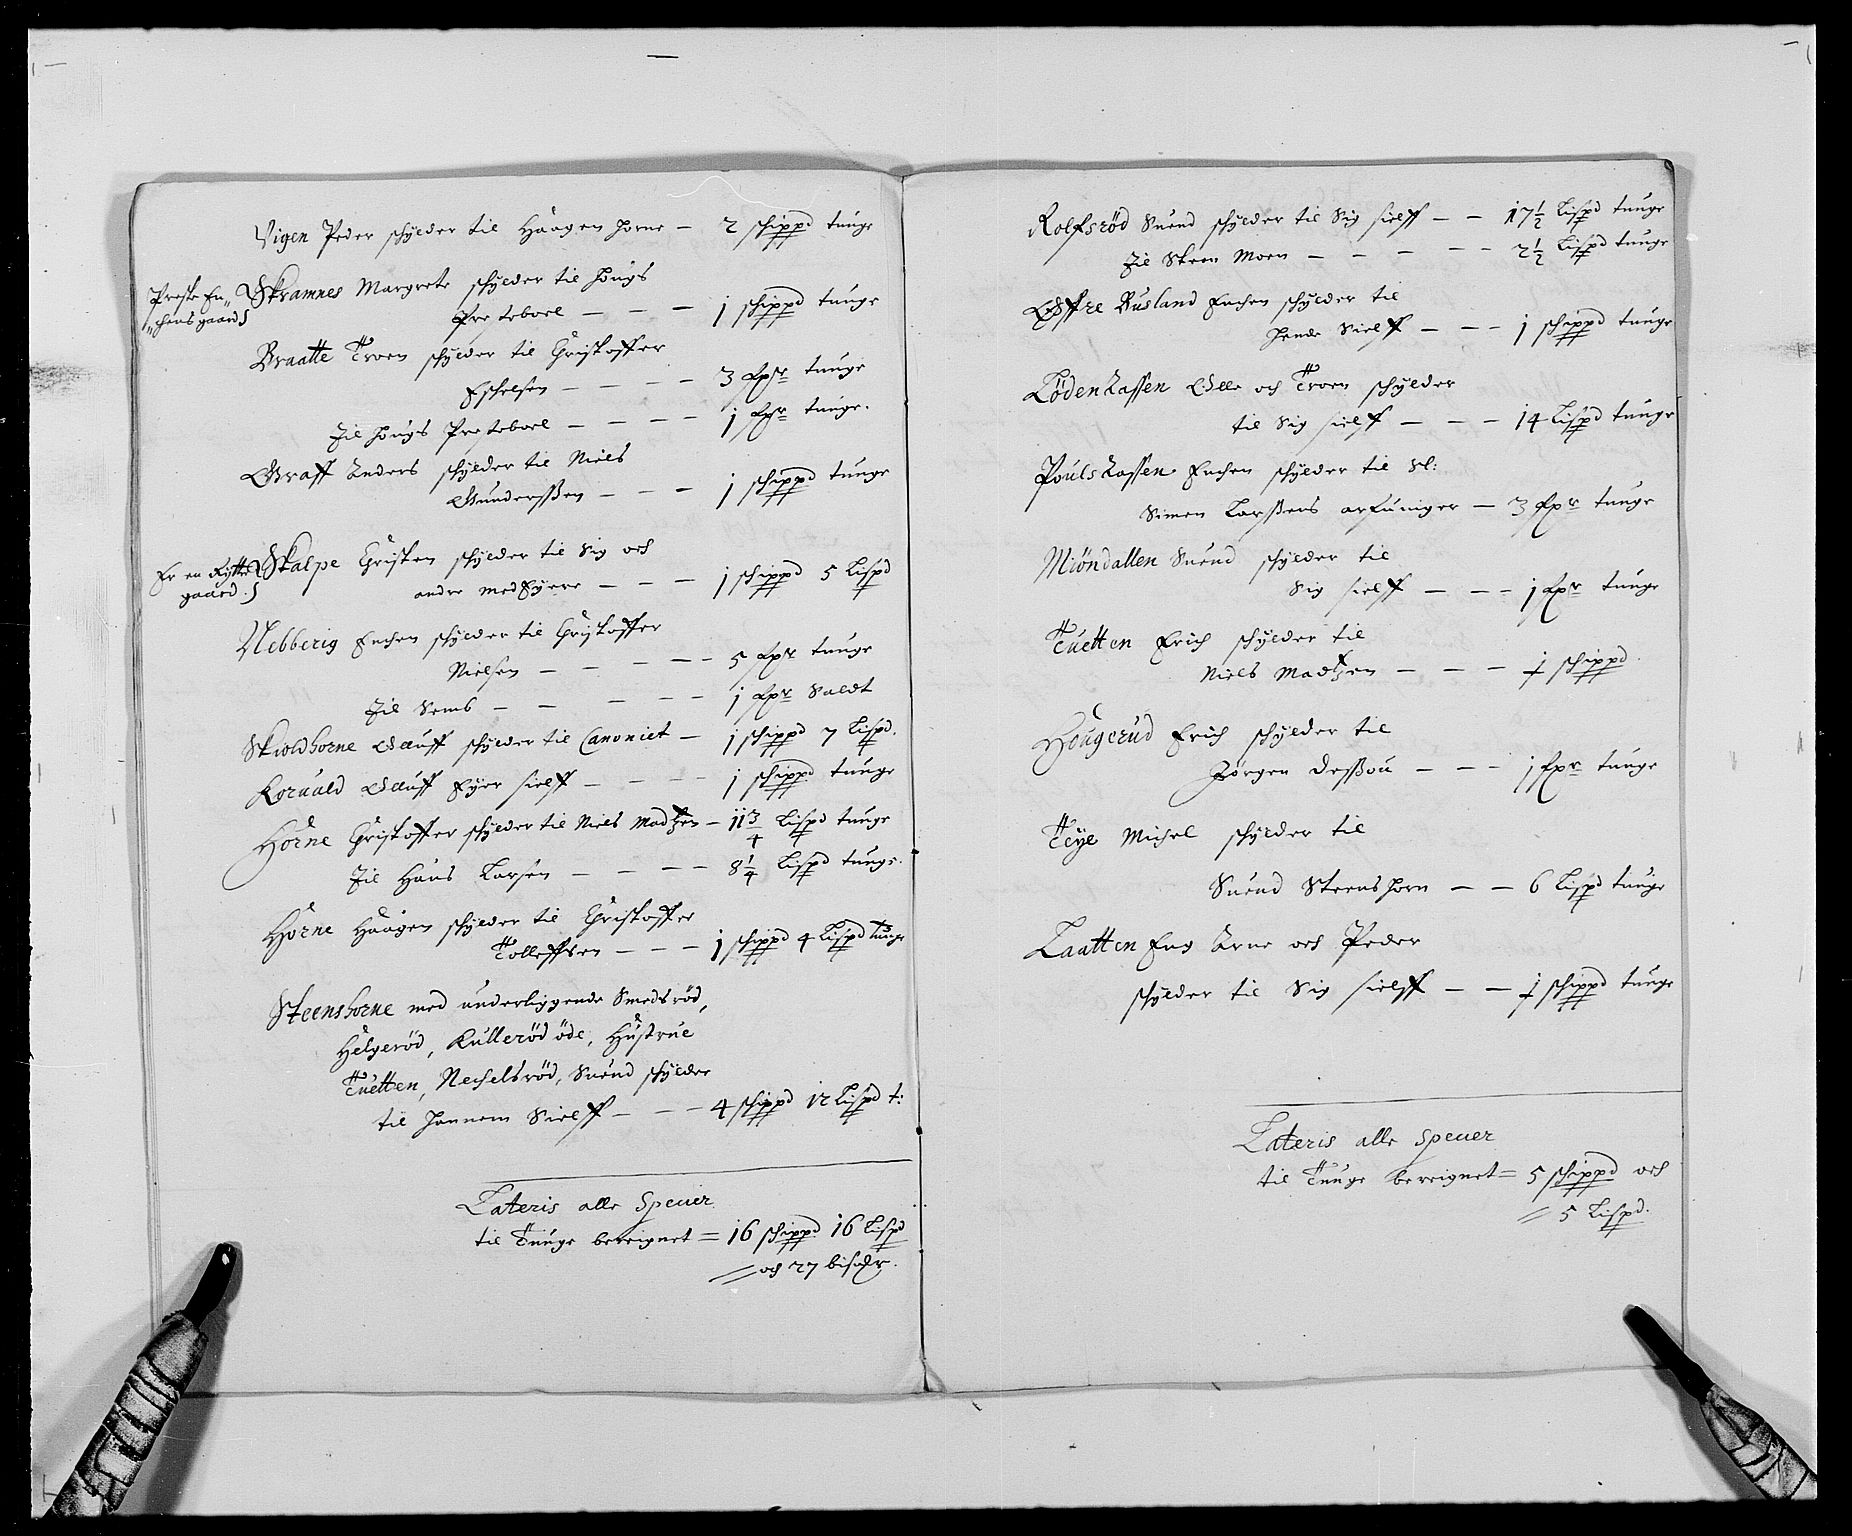 Vigen Peder schylder til Haagen horne — 2 schippd tunge
Preste En„
„chens gaard}
Skramnes Margrete schylder til hougs
Presteboel — — — 1 schippd tunge
Braatte Troen schylder til Christoffer
Eschelsen — — — — 3 fpr tunge
til hougs Presteboel — — — — 1 fpr tunge.
Graff Anders schylder til Niels
Gunderssen — — — 1 schippd tunge
Er en Rytter
gaard.}
Skalpe Christen schylder til Sig och
andre medEyere — — — 1 schippd 5 Lispd
Nebberig Enchen schylder til Christoffer
Nielsen — — — — — 5 fpr tunge
til Sembs — — — — — 1 fpr Saldt
Skioldhorne Oluff schylder til Canoniet — 1 schippd 7 Lispd.
Koruald Oluff Eyer sielff — — — — 1 schippd tunge
Horne Christoffer schylder til Niels Madtzen — 11 3/4 Lispd tunge
til Hans Larsen — — — — 8 1/4 Lispd tunge.
Horne Haagen schylder til Christoffer
Tolleffsen — — — 1 schippd 4 Lispd tunge
Steenshorne med underliggende Smedsröd,
Helgeröd, Kulleröd öde, Hustrue
Tuetten, Nechelsröd, Suend schylder
til hannem Sielff — — — 4 schippd 12 Lispd t:
Lateris alle Speuer
til Tunge bereignet = 16 schippd 16 Lispd
= och 27 bismr.
Rolfsröd Suend schylder til Sig sielff — — 17 1/2 Lispd tunge
til Skeen Moen — — — — — 2 1/2 Lispd tunge
Öffre Busland Enchen schylder til
hende Sielff — — — 1 schippd tunge
Lödenkassen Olle och Troen schylder
til Sig sielff — — — 14 Lispd tunge
Poulskassen Enchen schylder til Sl:
Simen Larssens arfuinger — 3 fpr tunge
Miöndallen Suend schylder til
Sig sielff — — — 1 fpr tunge
Tuetten Erich schylder til
Niels Madtzen — — — 1 schippd.
Hougerud Erich schylder til
Jörgen — — — 1 fpr tunge
Teye Michel schylder til
Suend Steenshorn — — 6 Lispd tunge
Laatten Eng Arne och Peder
schylder til Sig sielff — — 1 schippd tunge
Lateris alle Speuer
til Tunge bereignet = 5 schippd och
= 5 Lispd.